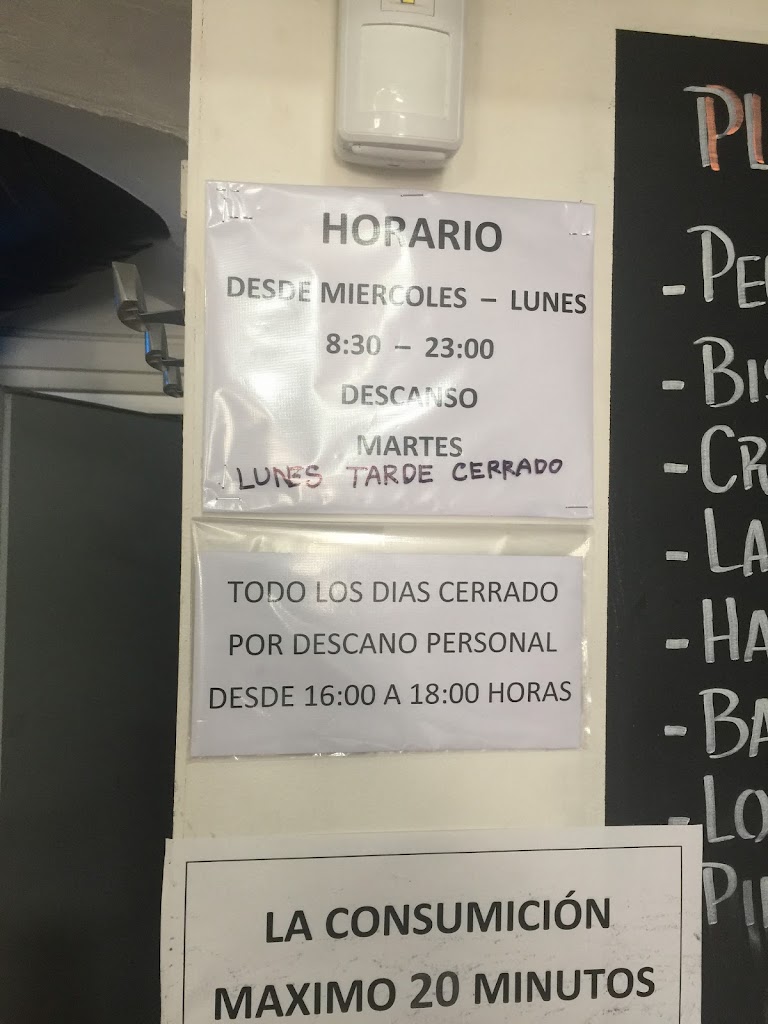 HORARIO
DESDE MIERCOLES – LUNES
8:30 – 23:00
DESCANSO
MARTES
LUNES TARDE CERRADO
TODO LOS DIAS CERRADO
POR DESCANO PERSONAL
DESDE 16:00 A 18:00 HORAS
LA CONSUMICIÓN
MAXIMO 20 MINUTOS